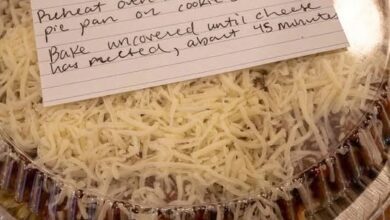 Preheat oven
pie pan or cookie
Bake uncovered until cheese
has melted, about 45 minutes.